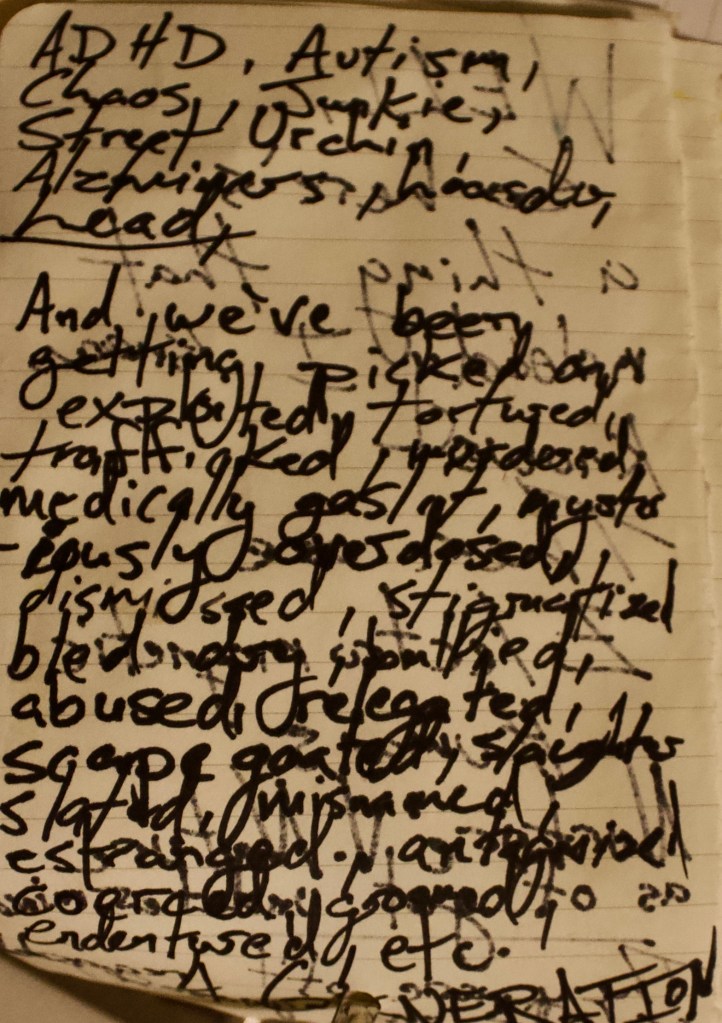 ADHD, Autism,
Chaos, Junkie,
Street Urchin,
Alzhiمers,
head,
And we've been
getting picked on,
exploited, tortured,
trafficked, murdered,
medically gaslit, myster
-iously overdosed,
dismissed, stigmatized
bled dry,
abused, relegated,
scape goated, slaughter
misnamed,
estranged,
coerced, groomed,
endentured, etc.